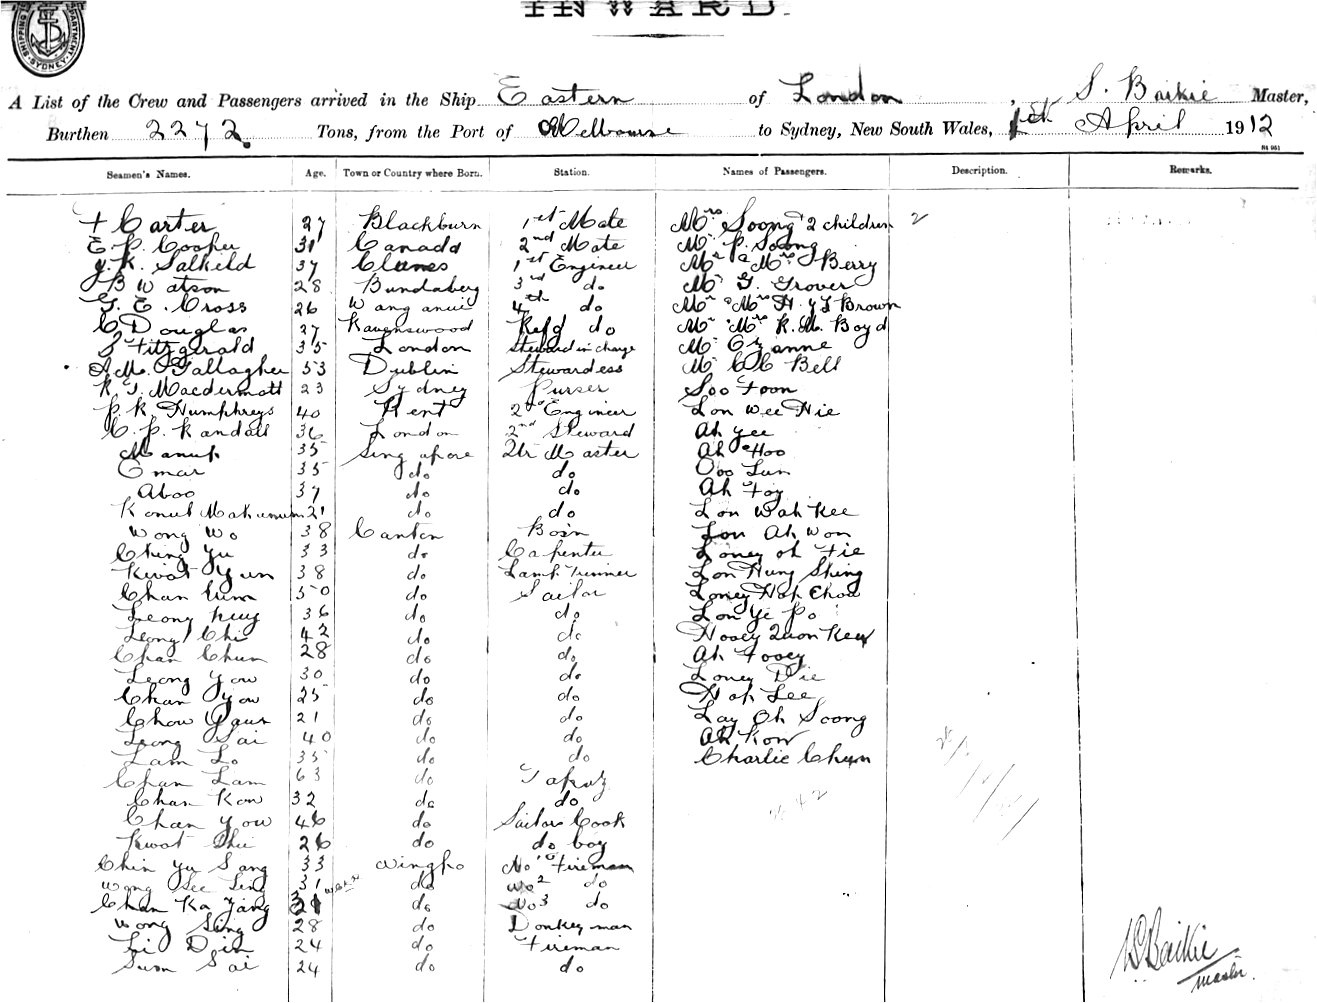 SHIPPING DEPARTMENT SYDNEY
INWARD.
A List of the Crew and Passengers arrived in the Ship Eastern of London, S. Baikie Master,
Burthen 2272 Tons, from the Port of Melbourne to Sydney, New South Wales, 1st April 1912
Seamen's Names. Age. Town or Country where Born. Station. Names of Passengers. Description. Remarks.
Carter 27 Blackburn 1st Mate Mrs Soong 2 children 2
E. P. Cooper 31 Canada 2nd Mate Mr P. Soong
J. K. Salkeld 37 Clunes 1st Engineer Mr & Mrs Berry
J B Watson 28 Bundaberg 3rd do Mr G. Grover
G. E. Cross 26 Wanganui 4th do Mr & Mrs H. Y L Brown
C Douglas 27 Ravenswood Refg do Mr & Mrs R. M. Boyd
J Fitzgerald 35 London Steward in charge Mr Ozanne
A. M. Gallagher 53 Dublin Stewardess Mr C C Bell
K. T. Macdermott 23 Sydney Purser Soo Foon
P. R. Humphreys 40 Kent 2nd Engineer Lon Wee Hie
C. P. Randall 36 London 2nd Steward Ah Yee
Manup 35 Singapore Qtr Master Ah Hoo
Omar 35 do do Ooo Lun
Aboo 37 do do Ah Foy
Konut 21 do do Lon Wah Kee
Wong Wo 38 Canton Bosn Lon Ah Won
Ching Yu 33 do Carpenter Loney oh Tie
Kwot Yun 38 do Lamp Trimmer Lon Hung Shing
Chan Lum 50 do Sailor Loney Hop Chou
Leong Kuy 36 do do Lon Ye Po
Leong Chi 42 do do Hooey Quon Kew
Chan Chun 28 do do Ah Fooey
Leong Yow 30 do do Loney Die
Chan Yow 25 do do Hop Lee
Chow Yaun 21 do do Lay Oh Soong
Leong Sai 40 do do Ah Kow
Lam Lo 35 do do Charlie Chun
Chan Lam 63 do Tapaz
Chan Kow 32 do do
Chan Yow 46 do Sailors Cook
Kwot Shu 26 do do boy
Chin Yu Sang 33 Ningpo No 1 Fireman
Wong See Ling 31 do No 2 do
Chan Ka Yang 21 do No 3 do
Wong Sing 28 do Donkeyman
Li Din 24 do Fireman
Sum Sai 24 do do
Baikie
Master